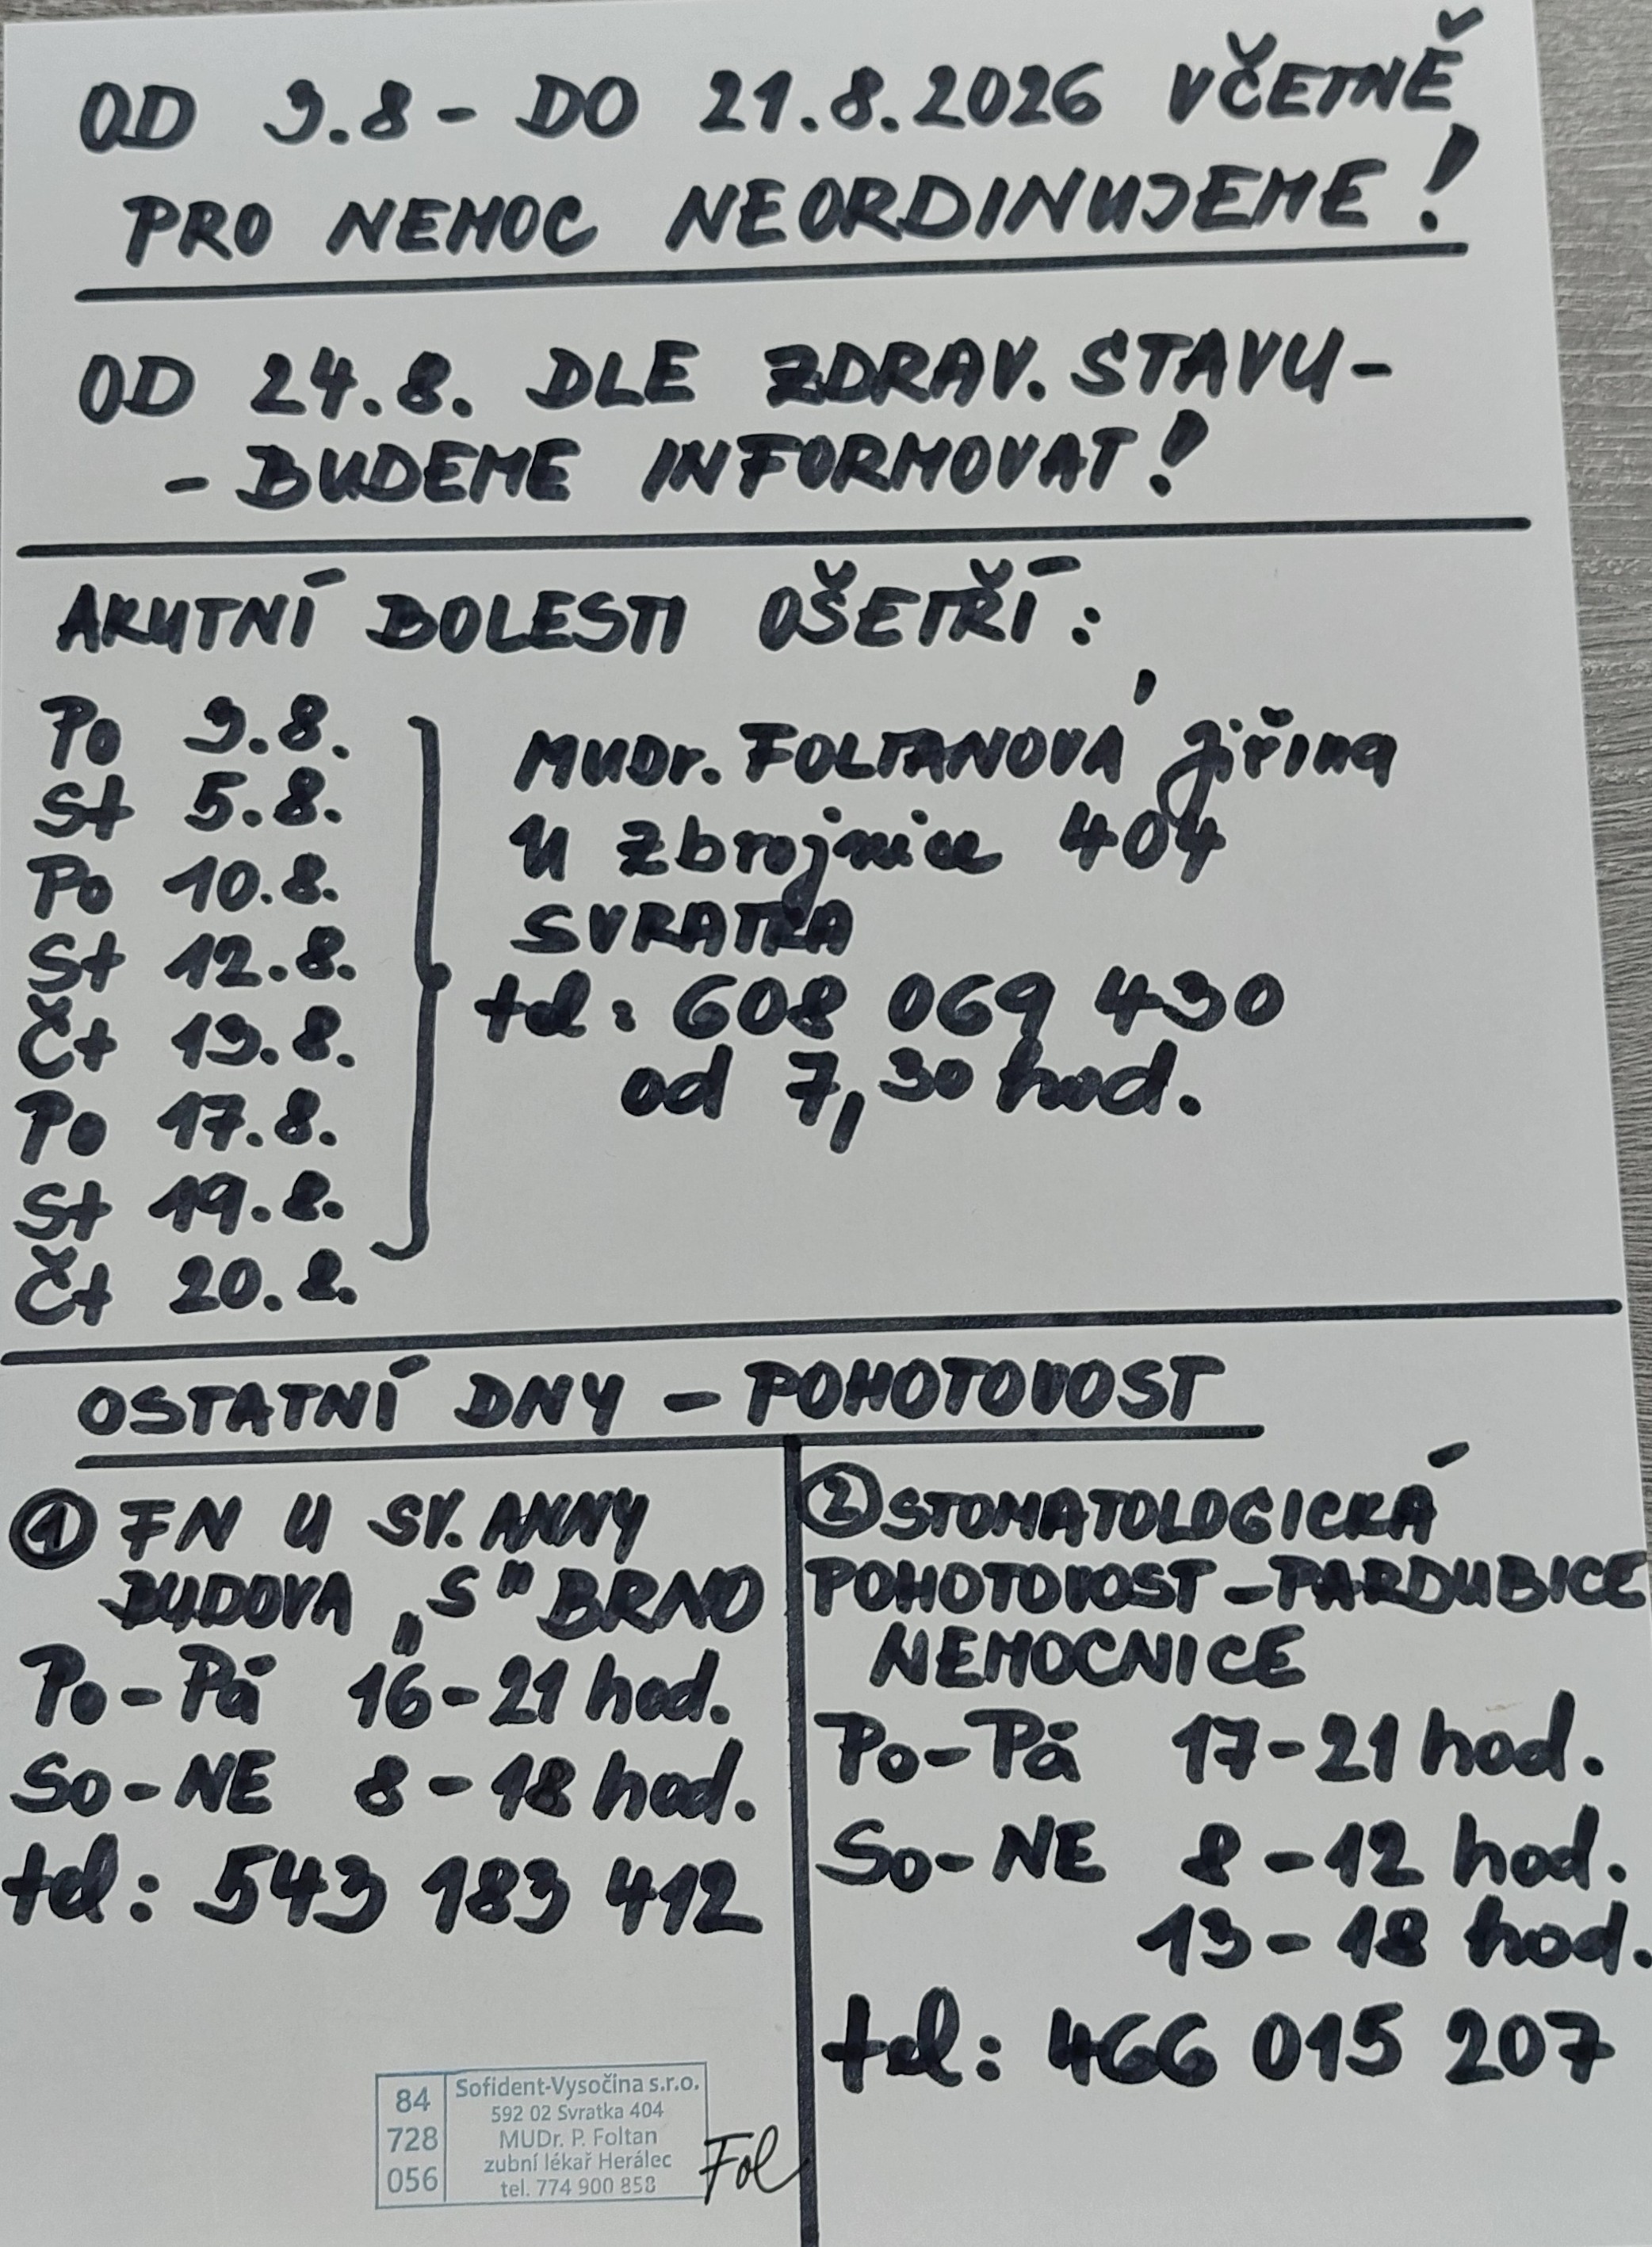 OD 3.8 - DO 21.8.2026 VČETNĚ
PRO NEMOC NEORDINUJEME!
OD 24.8. DLE ZDRAV. STAVU -
- BUDEME INFORMOVAT!
AKUTNÍ BOLESTI OŠETŘÍ:
Po 3.8.
St 5.8.
Po 10.8.
St 12.8.
Čt 13.8.
Po 17.8.
St 19.8.
Čt 20.8.
MUDr. FOLTANOVÁ Jiřina
U Zbrojnice 404
SVRATKA
tel: 608 069 430
od 7,30 hod.
OSTATNÍ DNY - POHOTOVOST
① FN U SV. ANNY
BUDOVA „S" BRNO
Po - Pá 16 - 21 hod.
So - NE 8 - 18 hod.
tel: 543 183 412
② STOMATOLOGICKÁ
POHOTOVOST - PARDUBICE
NEMOCNICE
Po - Pá 17 - 21 hod.
So - NE 8 - 12 hod.
13 - 18 hod.
tel: 466 015 207
84
728
056
Sofident-Vysočina s.r.o.
592 02 Svratka 404
MUDr. P. Foltan
zubní lékař Herálec
tel. 774 900 858
Fol